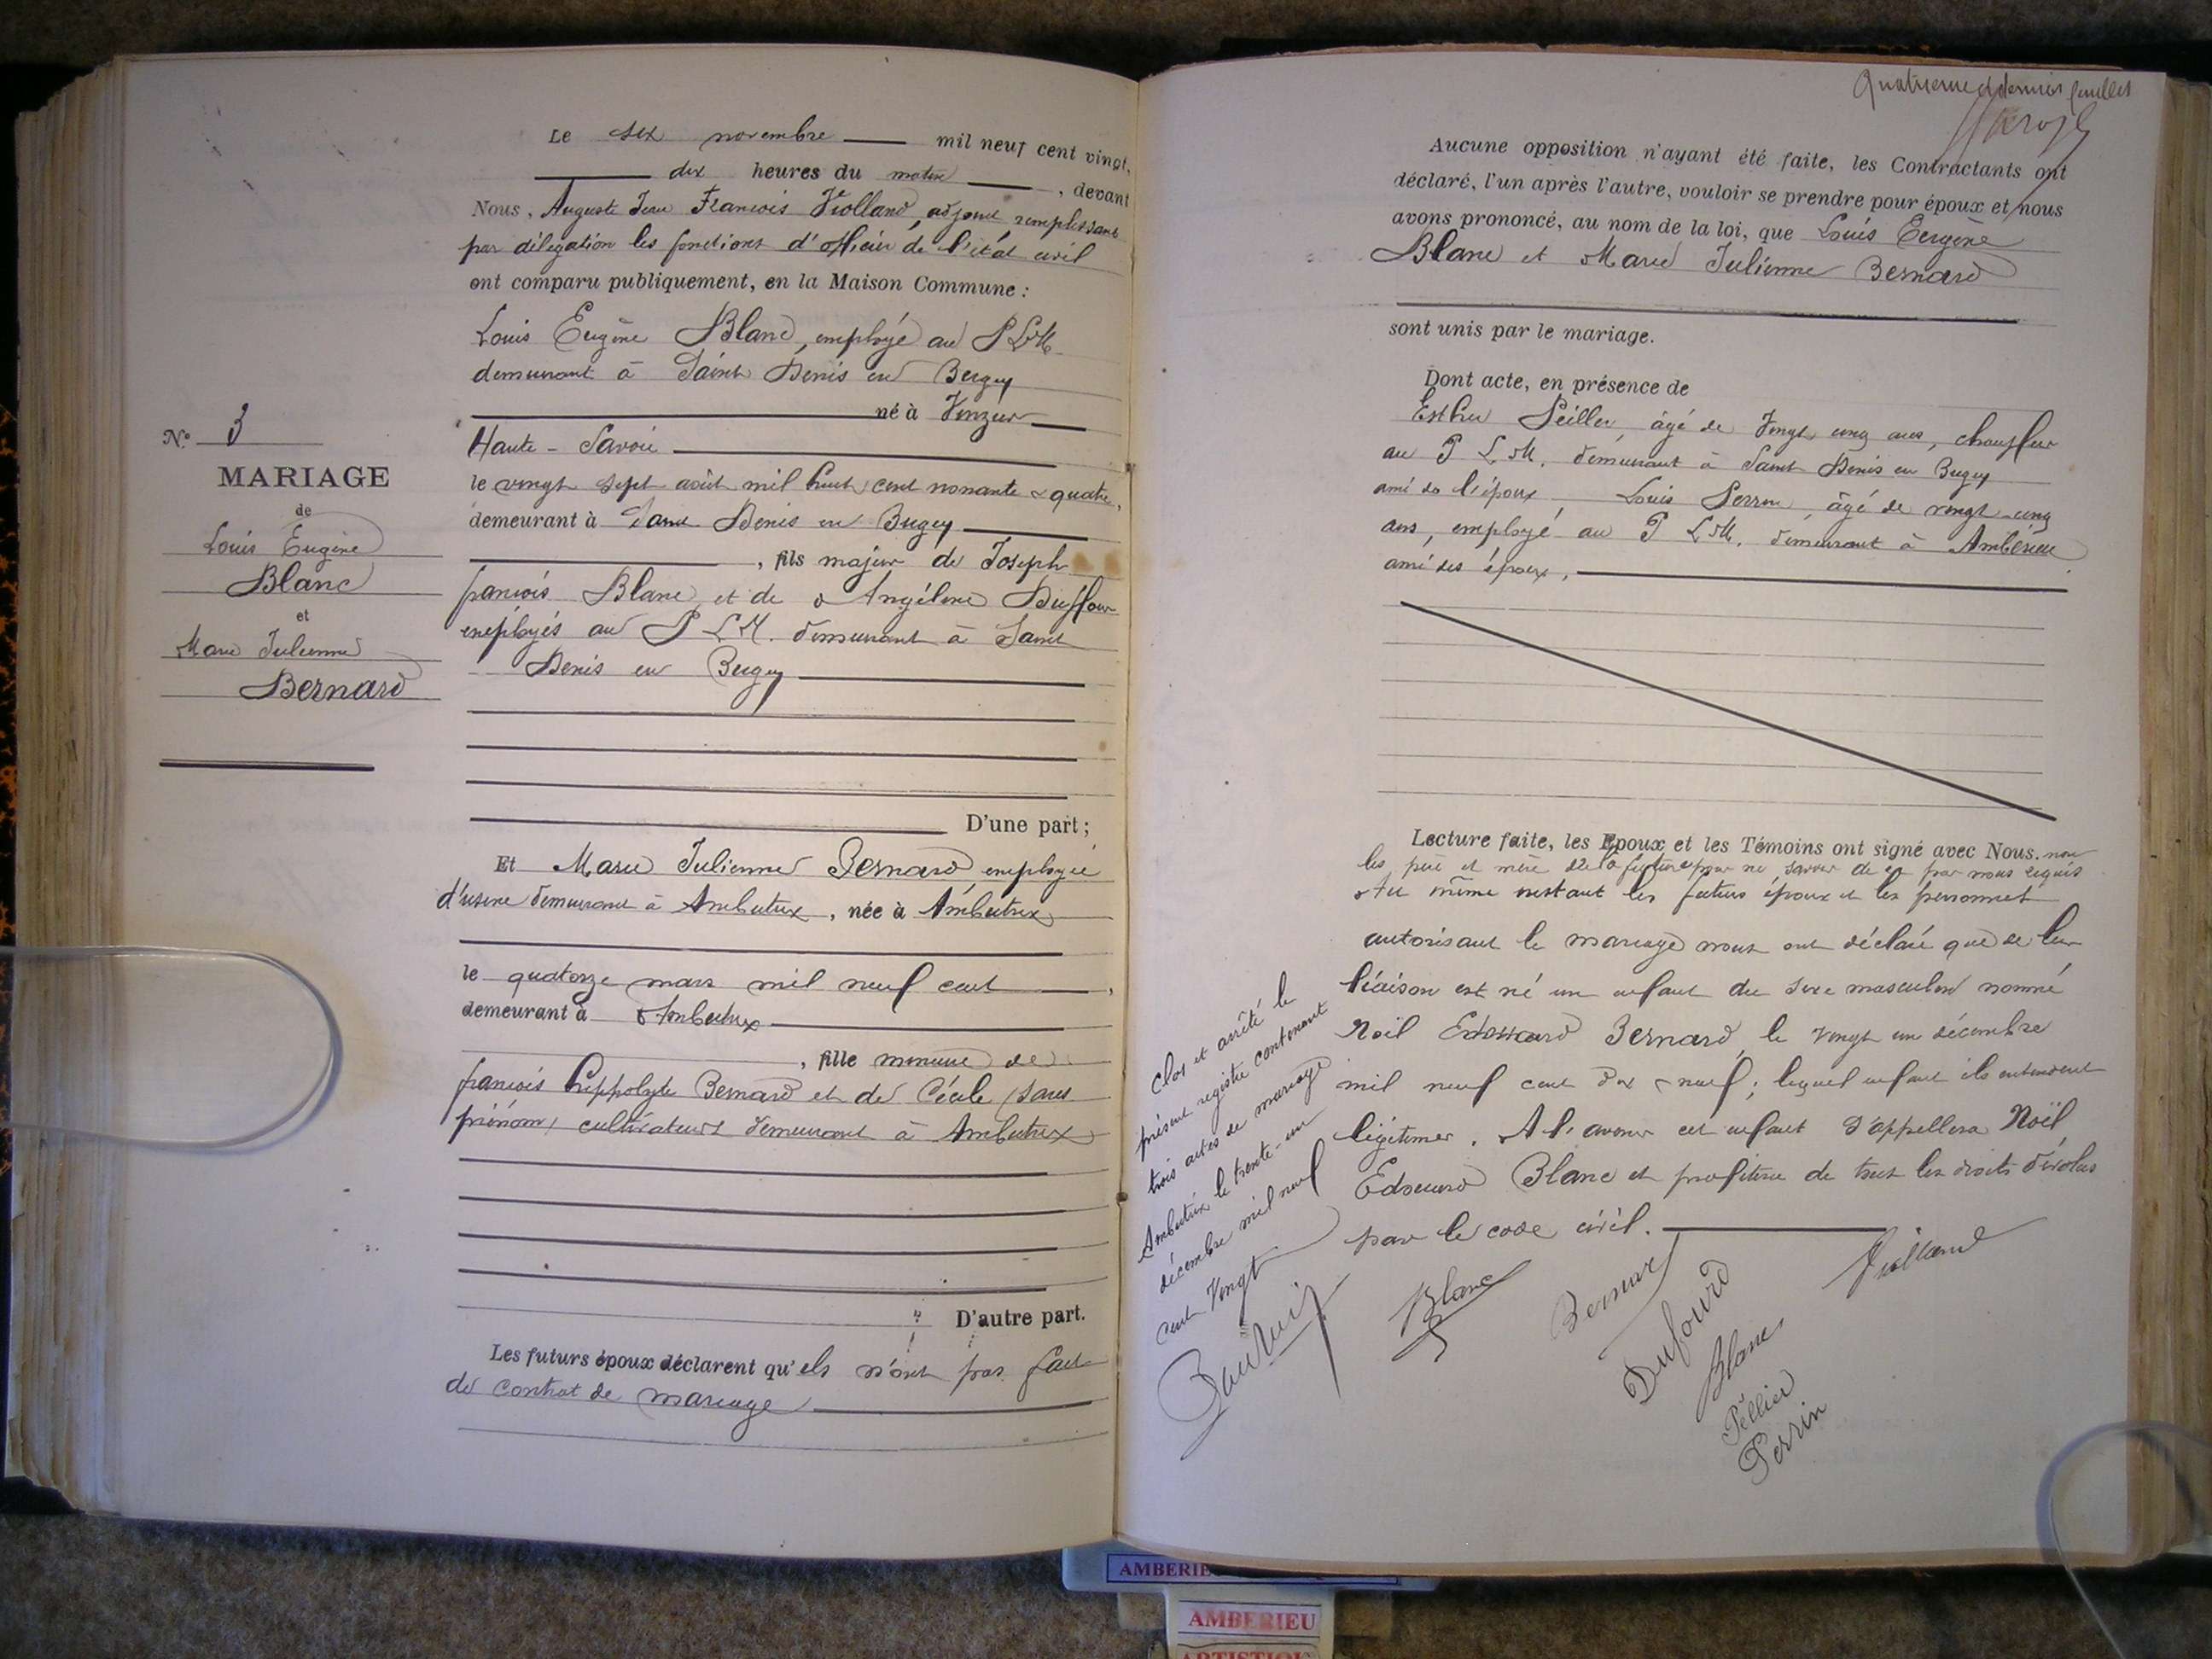 Le six novembre mil neuf cent vingt,
dix heures du matin, devant
Nous, Auguste Jean François Violland, adjoint, remplissant
par délégation les fonctions d'officier de l'état civil
ont comparu publiquement, en la Maison Commune :
Louis Eugène Blanc, employé au P L M
demeurant à Saint Denis en Bugey
né à Vinzier
Haute-Savoie
le vingt sept août mil huit cent nonante quatre,
demeurant à Saint Denis en Bugey
, fils majeur de Joseph
françois Blanc et de Angéline Duffour
employés au P L M. demeurant à Saint
Denis en Bugey
D'une part ;
Et Marie Julienne Bernard employée
d'usine demeurant à Ambutrix, née à Ambutrix
le quatorze mars mil neuf cent,
demeurant à Ambutrix
, fille mineure de
françois hippolyte Bernard et de Cécile (sans
prénom) cultivateurs demeurant à Ambutrix
D'autre part.
Les futurs époux déclarent qu'ils n'ont pas fait
de contrat de mariage
N° 3
MARIAGE
de
Louis Eugène
Blanc
et
Marie Julienne
Bernard
Quatrième et dernier feuillet
Aucune opposition n'ayant été faite, les Contractants ont
déclaré, l'un après l'autre, vouloir se prendre pour époux et nous
avons prononcé, au nom de la loi, que Louis Eugène
Blanc et Marie Julienne Bernard
sont unis par le mariage.
Dont acte, en présence de
Esther Peillex, âgé de Vingt cinq ans, chauffeur
au P L M. demeurant à Saint Denis en Bugey
ami de l'époux, Louis Perrin, âgé de vingt-cinq
ans, employé au P L M. demeurant à Ambérieu
ami des époux,
Lecture faite, les Epoux et les Témoins ont signé avec Nous. non
les père et mère de la future pour ne savoir de ce par nous requis
Au même instant les futurs époux et les personnes
autorisant le mariage nous ont déclaré que de leur
liaison est né un enfant du sexe masculin nommé
Noël Edouard Bernard, le vingt un décembre
mil neuf cent dix neuf ; lequel enfant ils entendent
légitimer. A l'avenir cet enfant s'appellera Noël,
Edouard Blanc et profitera de tous les droits dévolus
par le code civil.
Violland
Blanc
Bernard
Dufourd
Blanc
Pellier
Perrin
Clos et arrêté le
présent registre contenant
trois actes de mariage
Ambutrix le trente-un
décembre mil neuf
cent Vingt
AMBERIE
AMBERIEU